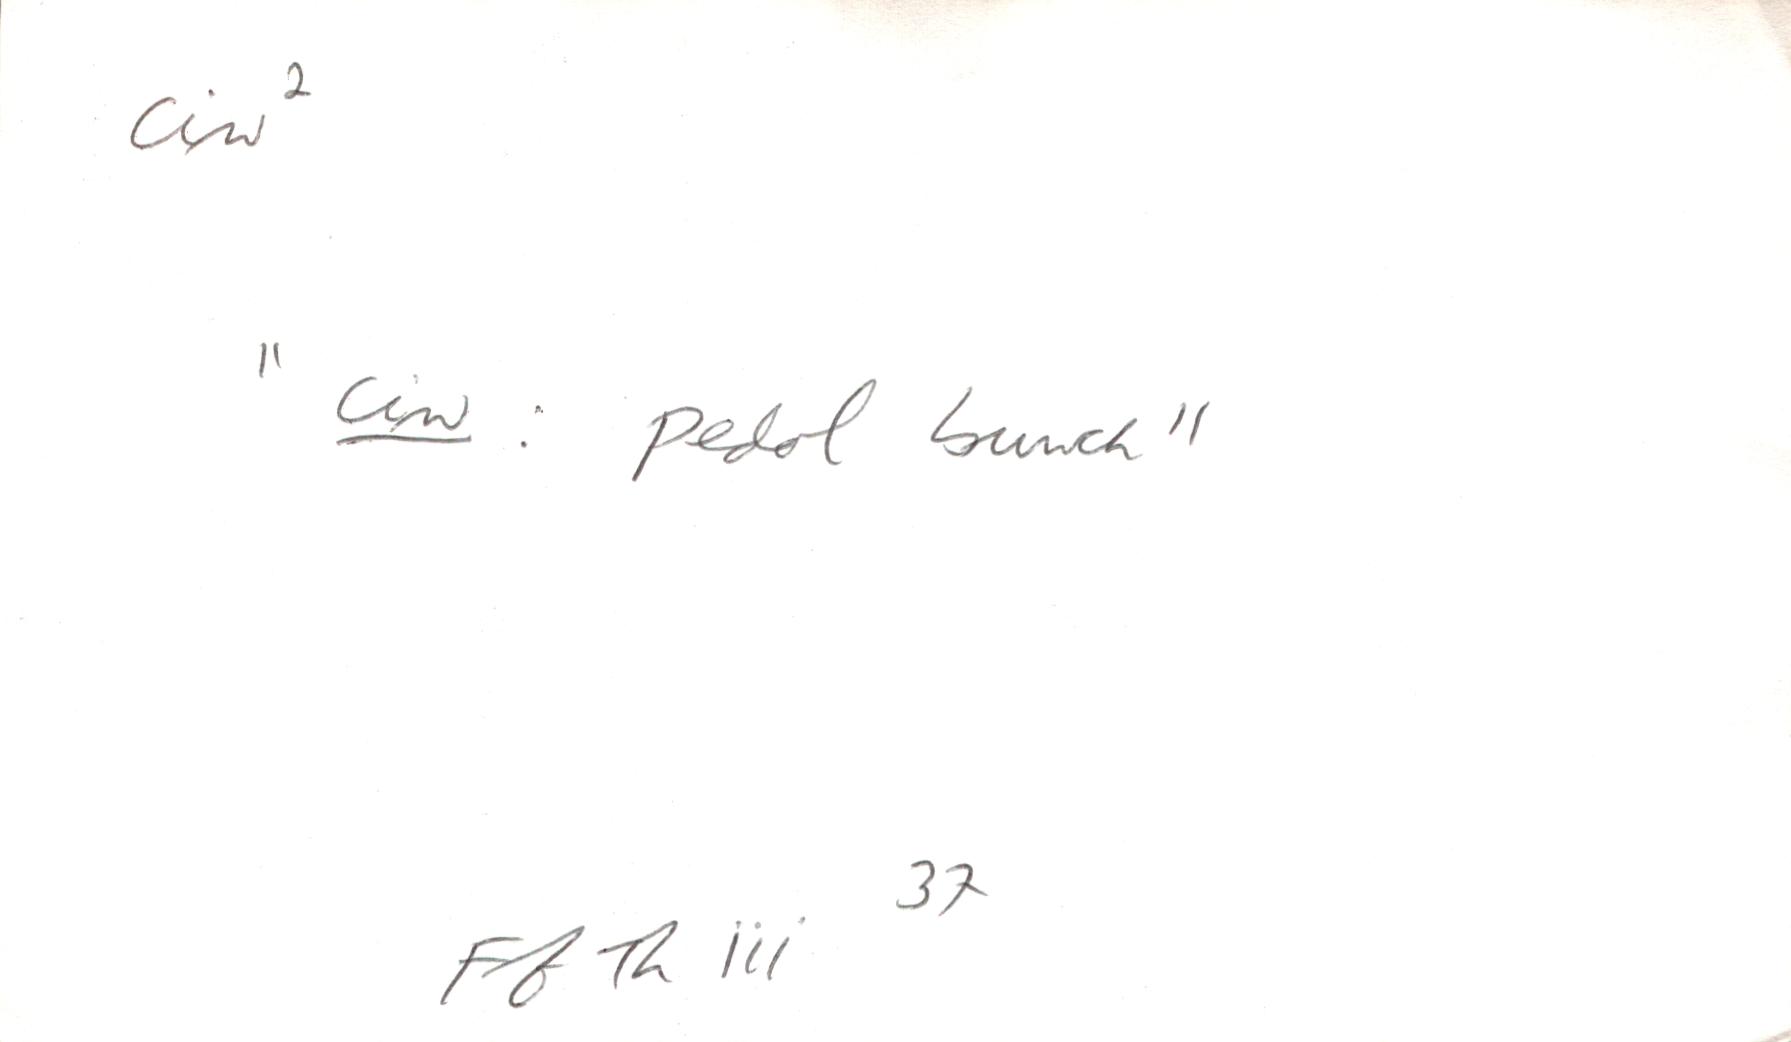 Ciw²
"ciw: pedol bunch"
37
Ff Th iii